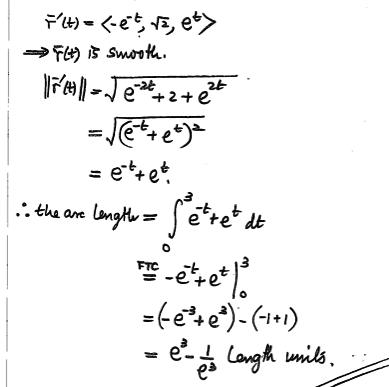 r̄'(t) = <-e^-t, √2, e^t>
⟹ r̄(t) is smooth.
||r̄'(t)|| = √(e^-2t + 2 + e^2t)
= √((e^-t + e^t)^2)
= e^-t + e^t.
∴ the arc length = ∫_0^3 e^-t + e^t dt
FTC = -e^-t + e^t |_0^3
= (-e^-3 + e^3) - (-1+1)
= e^3 - 1/e^3 length units.